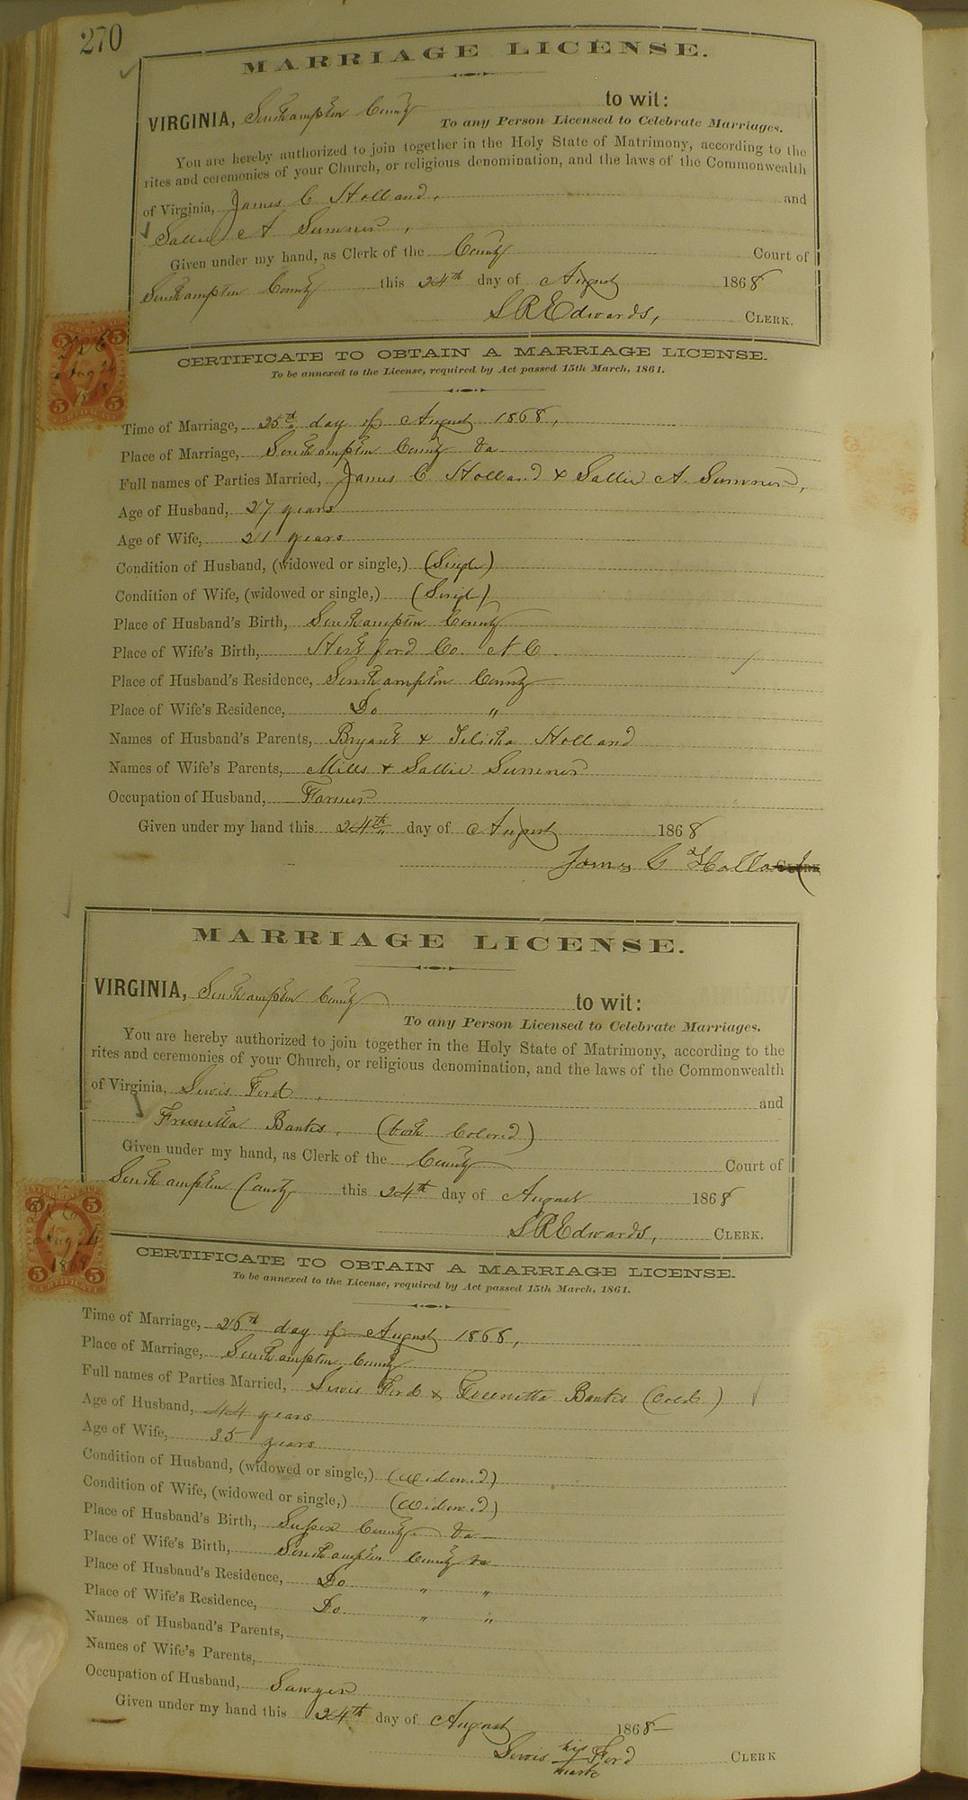 270
MARRIAGE LICENSE.
VIRGINIA, Southampton County to wit:
To any Person Licensed to Celebrate Marriages.
You are hereby authorized to join together in the Holy State of Matrimony, according to the
rites and ceremonies of your Church, or religious denomination, and the laws of the Commonwealth
of Virginia, James C Holland, and
Sallie A Sumner,
Given under my hand, as Clerk of the County Court of
Southampton County this 24th day of August 1868
S R Edwards, CLERK.
CERTIFICATE TO OBTAIN A MARRIAGE LICENSE.
To be annexed to the License, required by Act passed 15th March, 1861.
Time of Marriage, 25th day of August 1868,
Place of Marriage, Southampton County Va
Full names of Parties Married, James C Holland & Sallie A. Sumner,
Age of Husband, 27 years
Age of Wife, 21 years
Condition of Husband, (widowed or single,) (Single)
Condition of Wife, (widowed or single,) (Single)
Place of Husband's Birth, Southampton County
Place of Wife's Birth, Hertford Co. N C.
Place of Husband's Residence, Southampton County
Place of Wife's Residence, Do "
Names of Husband's Parents, Bryant & Holland
Names of Wife's Parents, Mills & Sallie Sumner
Occupation of Husband, Farmer
Given under my hand this 24th day of August 1868
James C Holland CLERK
MARRIAGE LICENSE.
VIRGINIA, Southampton County to wit:
To any Person Licensed to Celebrate Marriages.
You are hereby authorized to join together in the Holy State of Matrimony, according to the
rites and ceremonies of your Church, or religious denomination, and the laws of the Commonwealth
of Virginia, Lewis Ford, and
Banks, (both Colored)
Given under my hand, as Clerk of the County Court of
Southampton County this 24th day of August 1868
S R Edwards, CLERK.
CERTIFICATE TO OBTAIN A MARRIAGE LICENSE.
To be annexed to the License, required by Act passed 15th March, 1861.
Time of Marriage, 26th day of August 1868,
Place of Marriage, Southampton County
Full names of Parties Married, Lewis Ford & Banks (Cold)
Age of Husband, 44 years
Age of Wife, 35 years
Condition of Husband, (widowed or single,) (Widowed)
Condition of Wife, (widowed or single,) (Widowed)
Place of Husband's Birth, Sussex County Va
Place of Wife's Birth, Southampton County Va
Place of Husband's Residence, Do " "
Place of Wife's Residence, Do " "
Names of Husband's Parents,
Names of Wife's Parents,
Occupation of Husband, Sawyer
Given under my hand this 24th day of August 1868
Lewis his mark Ford CLERK